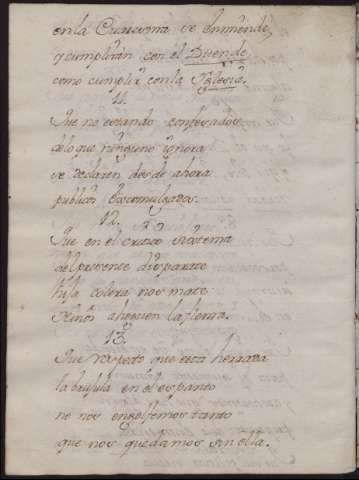 en la Cuaresma se enmiende,
y cumplirán con el Duende
como cumplir con la Iglesia.
11.
Que no estando confesados
de lo que ninguno ignora
se declaren desde ahora
publicos Excomulgados.
12.
Que en el craso sistema
del presente disparate
hija colera nos mate
Señor ahoguen la flema.
13.
Que respecto que esta herrada
la brujula en el espanto
no nos engolfemos tanto
que nos quedamos sin ella.